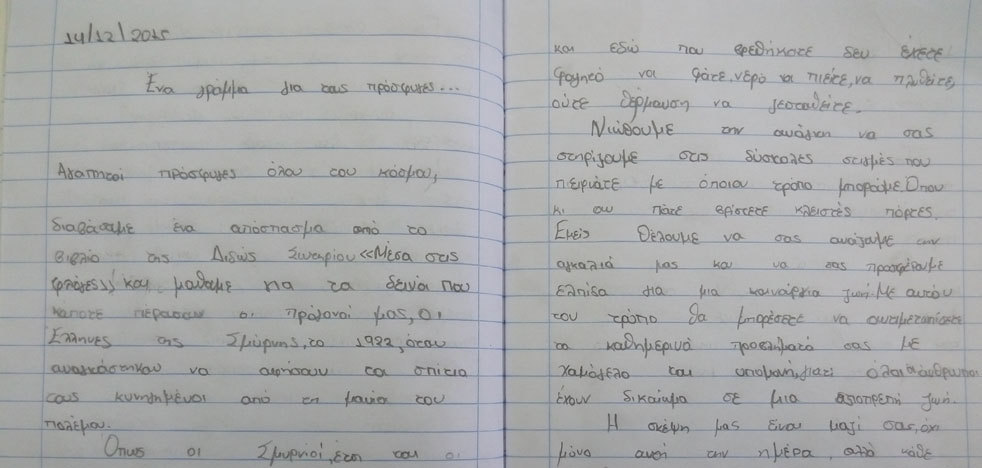 14/12/2015
Ένα γράμμα για τους πρόσφυγες...
Αγαπητοί πρόσφυγες όλου του κόσμου,
διαβάσαμε ένα απόσπασμα από το
βιβλίο της Διδώς Σωτηρίου «Μέσα στις
φλόγες» και μάθαμε για τα δεινά που
κάποτε πέρασαν οι πρόγονοί μας, οι
Έλληνες της Σμύρνης, το 1922, όταν
αναγκάστηκαν να αφήσουν τα σπίτια
τους κυνηγημένοι από τη μανία του
πολέμου.
Όπως οι Σμυρνιοί, έτσι και οι
και εδώ που βρεθήκατε δεν έχετε
φαγητό να φάτε, νερό να πιείτε, να πλυθείτε,
ούτε θέρμανση να ζεσταθείτε.
Νιώθουμε την ανάγκη να σας
στηρίξουμε στις δύσκολες στιγμές που
περνάτε με όποιον τρόπο μπορούμε. Όπου
κι αν πάτε βρίσκετε κλειστές πόρτες.
Εμείς θέλουμε να σας ανοίξουμε την
αγκαλιά μας και να σας προσφέρουμε
ελπίδα για μια καινούργια ζωή. Με αυτόν
τον τρόπο θα μπορέσετε να αντιμετωπίσετε
τα καθημερινά προβλήματά σας με
χαμόγελο και υπομονή, γιατί όλοι οι άνθρωποι
έχουν δικαίωμα σε μια αξιοπρεπή ζωή.
Η σκέψη μας είναι μαζί σας, όχι
μόνο αυτή την ημέρα, αλλά κάθε